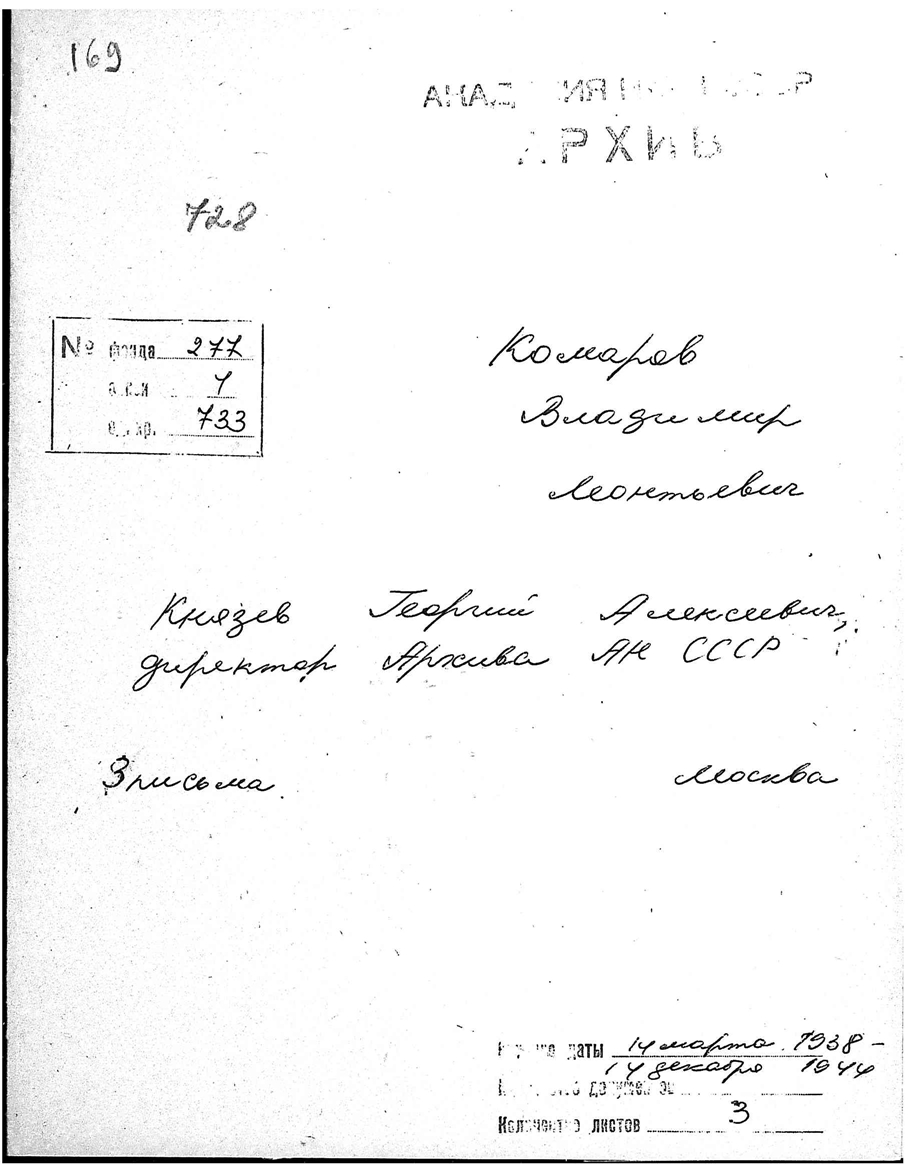 169
АКАДЕМИЯ НАУК СССР
АРХИВ
728
№ фонда 277
описи 1
ед. хр. 733
Комаров
Владимир
Леонтьевич
Князев Георгий Алексеевич,
директор Архива АН СССР
3 письма. Москва
Крайние даты 14 марта 1938 –
14 декабря 1944
Количество документов
Количество листов 3